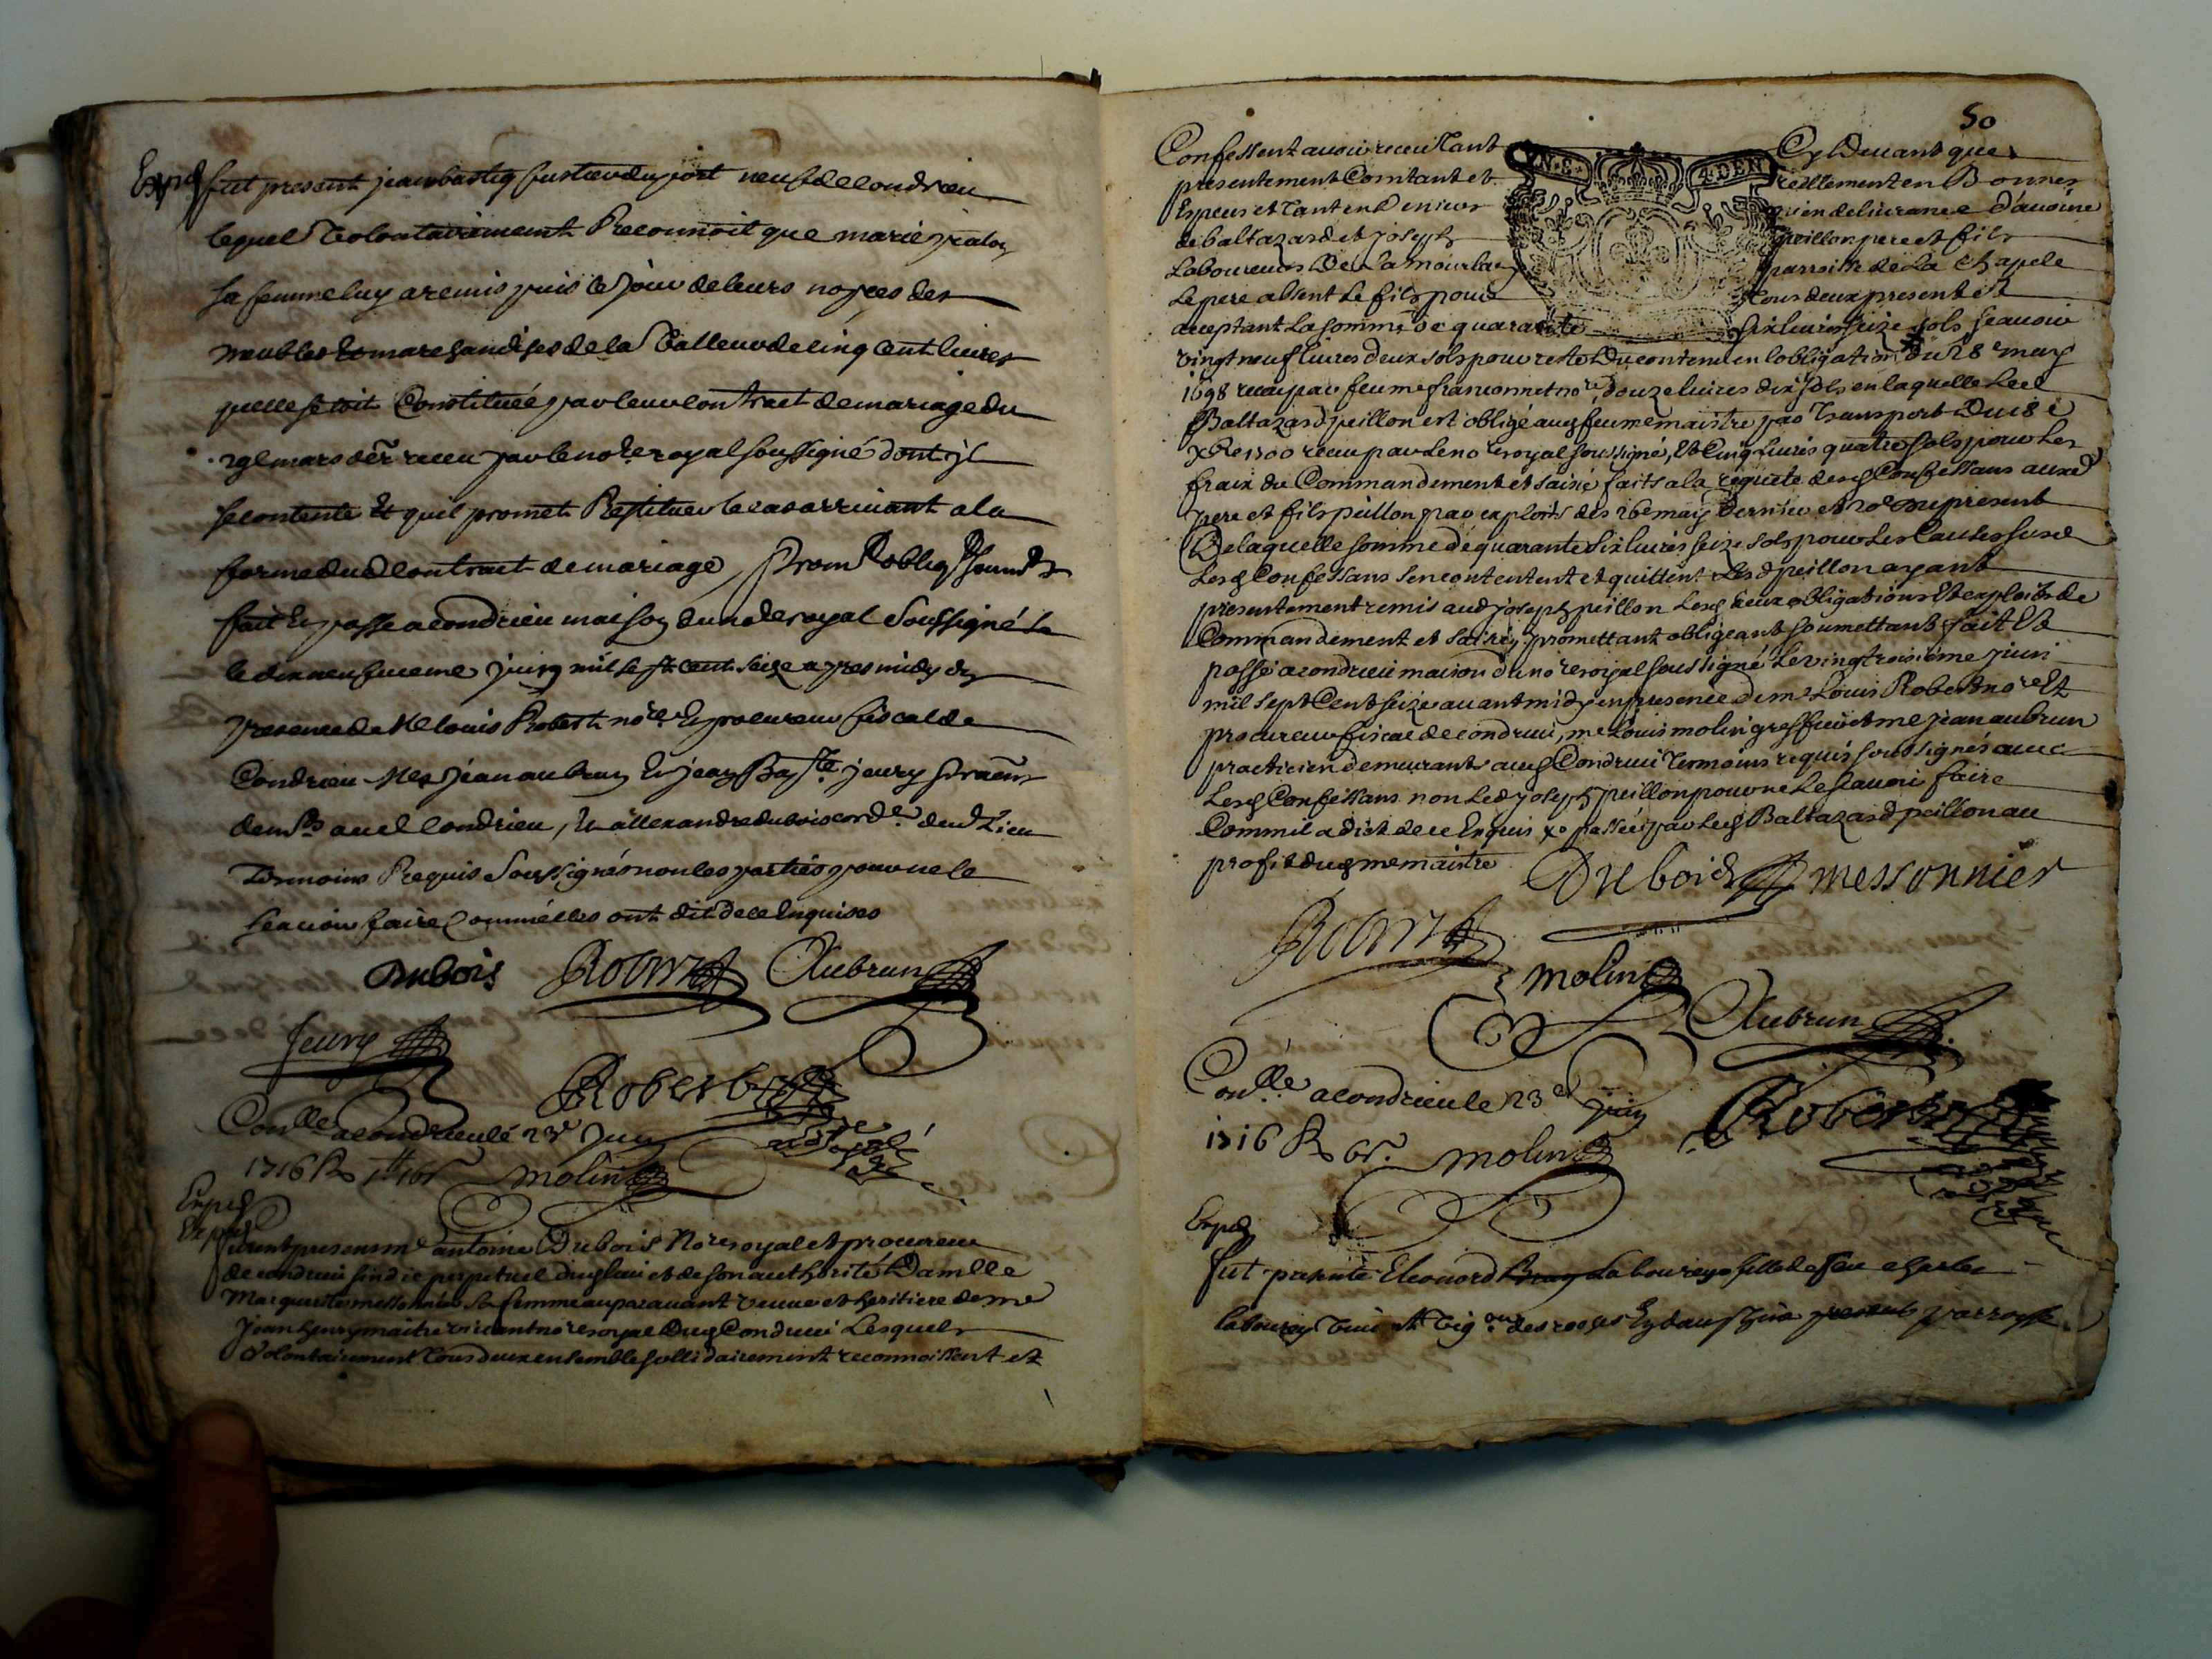 Exped fut present jean bastig fustier du port neuf de condrieu
lequel volontairement Reconnoit que marie
sa femme luy a remis puis le jour de leurs nopces des
meubles et marchandises de la valleur de cinq cent livres
quelle sestoit Constituée par leur contract de mariage du
mars der receu par le no.re royal soussigné dont jl
se contente Et quil promet Restituer le cas arrivant a la
forme dud contract de mariage, prom oblig soum
fait Et passe a condrieu maison du no.re royal Soussigné
le dixneufvieme juing mil sept cent seize apres midy en
presence de Me louis Robert no.re Et procureur fiscal de
Condrieu Mes jean aubrun Et jean Bap.te jeury
aud Condrieu, Et allexandre dubois cord.r dud Lieu
Temoins Requis Soussignés non les parties pour ne le
sçavoir faire Comme elles ont dit de ce Enquises
Dubois Robert Aubrun
Jeury
Robert
Con.lle a condrieu le 23e juin
1716 R molin
Exped
Exped
furent presens me antoine Dubois No.re royal et procureur
de condrieu sindic perpetuel dud lieu et de son authorité Damlle
Marguerite messonnier sa femme auparavant veuve et heritiere de me
Jean henry maitre vivant no.re royal Dud Condrieu Lesquels
volontairement tous deux ensemble sollidairement reconnoissent et
50
Confessent avoir receu Tant Cy Devant que
presentement Comtant et réellement en Bonnes
Especes et Tant en Deniers quen delivrance d'avoine
de baltazard et joseph peillon pere et fils
Laboureurs De parroisse de La Chapele
Le pere absent Le fils pour tous deux present Et
aceptant La somme de quarante six livres seize sols sçavoir
vingt neuf livres deux sols pour reste Du contenu en lobligation du 28e may
1698 receu par feu me franconnet no.re, douze livres dix sols en laquelle Led
Baltazard peillon est obligé aud feu me maitre par Transport Du 18e
xbre 1700 receu par Le no.re royal soussigné, Et Cinq Livres quatre sols pour Les
fraix du Commandement et saisie faits a la requete desd Confessans auxd
pere et fils peillon par exploits des 26e may Dernier et du present
De laquelle somme de quarante six livres seize sols pour Les Causes susd
Lesd Confessans sen contentent et quittent Lesd peillon ayant
presentement remis aud joseph peillon Lesd deux obligations Et exploits de
Commandement et saisie, promettant obligeant soumettant fait Et
passé a condrieu maison du no.re royal soussigné Le vingtroisieme juin
mil sept Cent seize avant midy en presence de me Louis Robert no.re Et
procureur fiscal de condrieu, me Louis molin greffier et me jean aubrun
practicien demeurants aud Condrieu Temoins requis soussignés avec
Lesd Confessans non Led joseph peillon pour ne Le sçavoir faire
Comme il a dict de ce Enquis passée par Led Baltazard peillon au
profit dud me maistre
Dubois messonnier
Robert
molin
Aubrun
Con.lle a condrieu le 23e juin
1716 R 6s. molin
Robert
Exped
fut presente Eleonord Laboureys fille de feu charles